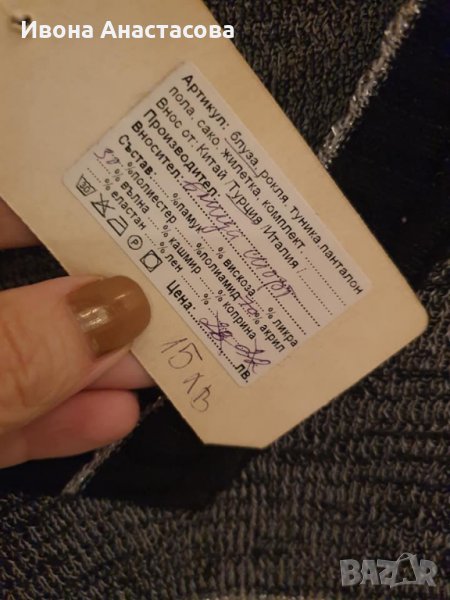 Ивона Анастасова
Артикул: блуза, рокля, туника панталон
пола, сако, жилетка, комплект
Внос от: Китай Турция Италия :
Производител:
Вносител:
Състав: %памук % вискоза % ликра
30 %полиестер %полиамид 70 % акрил
% вълна % кашмир % коприна
% еластан % лен
Цена: лв.
15 лв
BAZAR